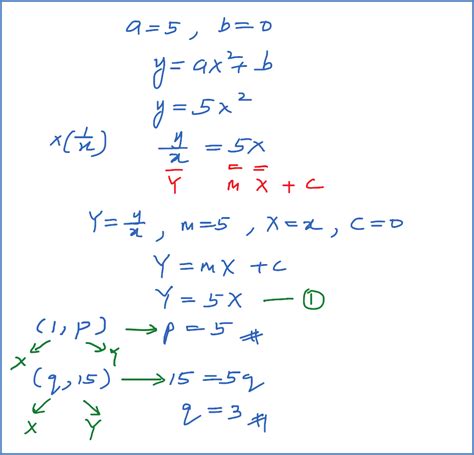 a=5, b=0
y=ax²+b
y=5x²
×(1/x) y/x = 5x
Y m X + C
Y=y/x, m=5, X=x, C=0
Y=mX+C
Y=5X — ①
(1,p) → p=5 #
X Y
(q,15) → 15=5q
X Y q=3 #